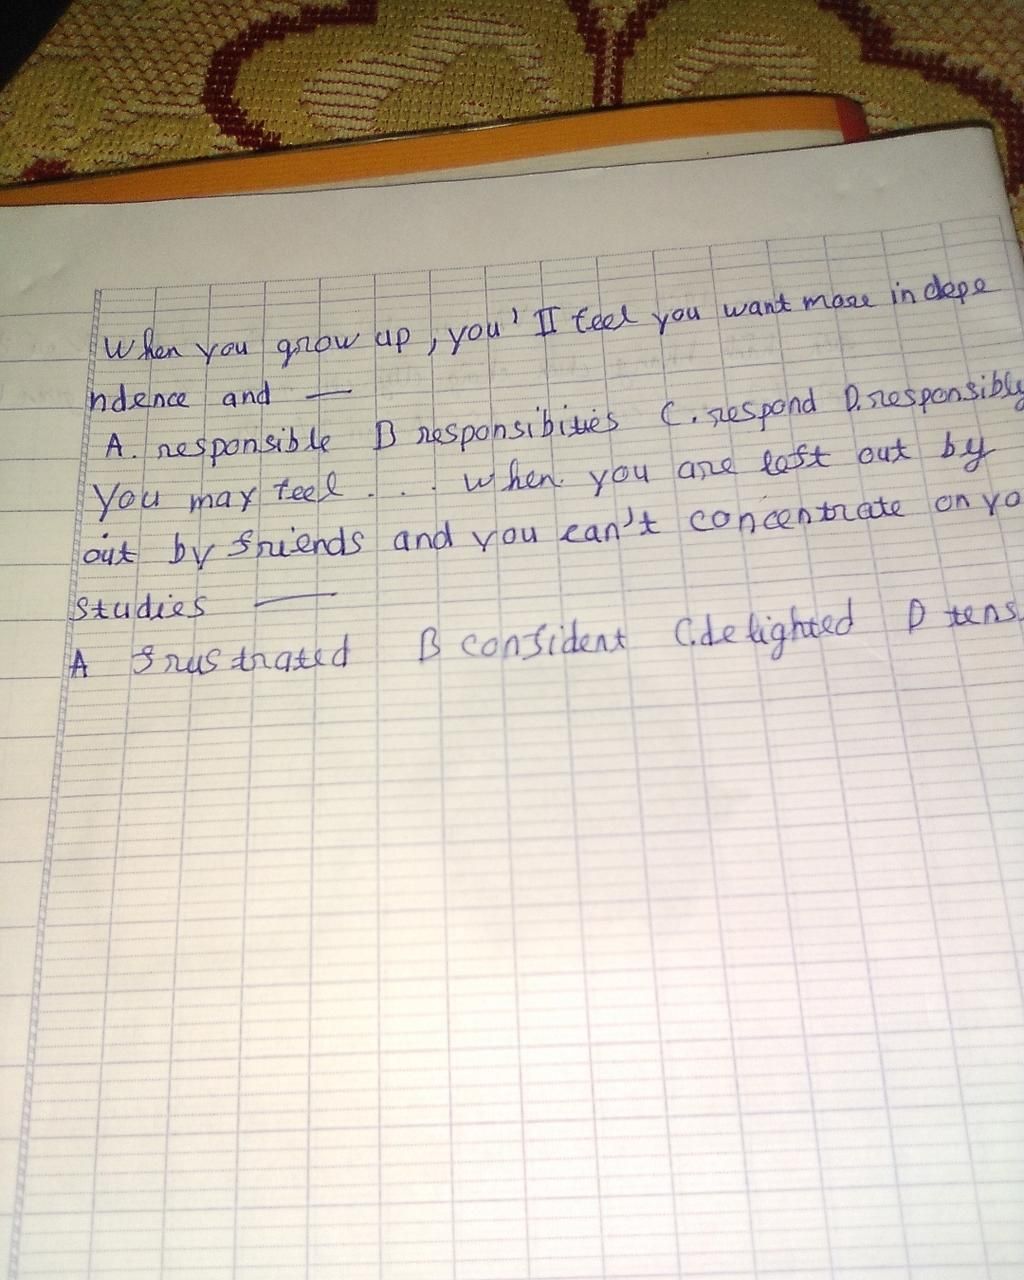 When you grow up, you'll feel you want more indepe
ndence and —
A. responsible B responsibities C. respond D. responsibly
You may feel . . . when you are left out by
out by friends and you can't concentrate on yo
studies —
A frustrated B confident C. delighted D tens